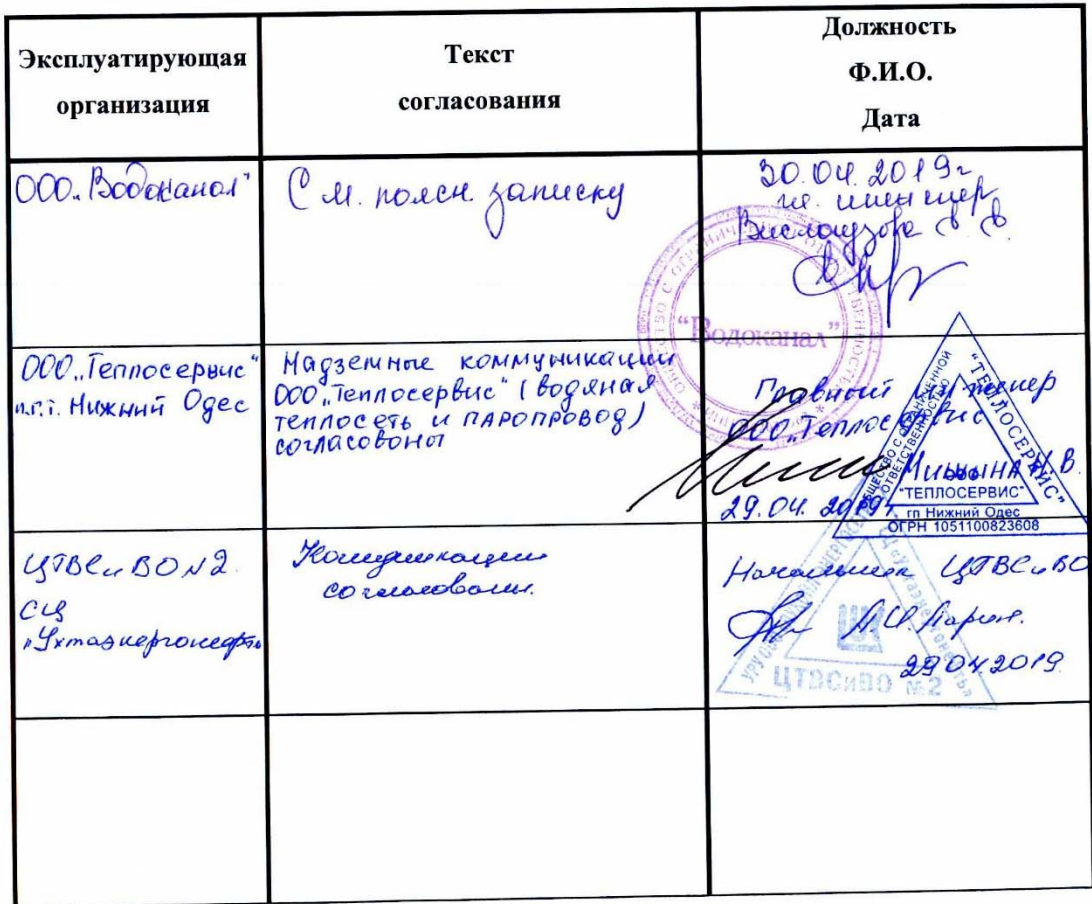 Эксплуатирующая
организация
Текст
согласования
Должность
Ф.И.О.
Дата
ООО „Водоканал"
См. поясн. записку
30.04.2019г
гл. инженер
"Водоканал"
ООО „Теплосервис"
п.г.т. Нижний Одес
Надземные коммуникации
ООО „Теплосервис" (водяная
теплосеть и паропровод)
согласованы
Главный инженер
ООО „Теплосервис
29.04.2019г.
"ТЕПЛОСЕРВИС"
ОБЩЕСТВО С ОГРАНИЧЕННОЙ
ОТВЕТСТВЕННОСТЬЮ
ООО
"ТЕПЛОСЕРВИС"
гп Нижний Одес
ОГРН 1051100823608
ЦТВСиВО №2.
СЦ
"Ухтаэнергонефть
Коммуникации
согласованы.
Начальник ЦТВСиВО
29.04.2019.
ЦТВСиВО №2